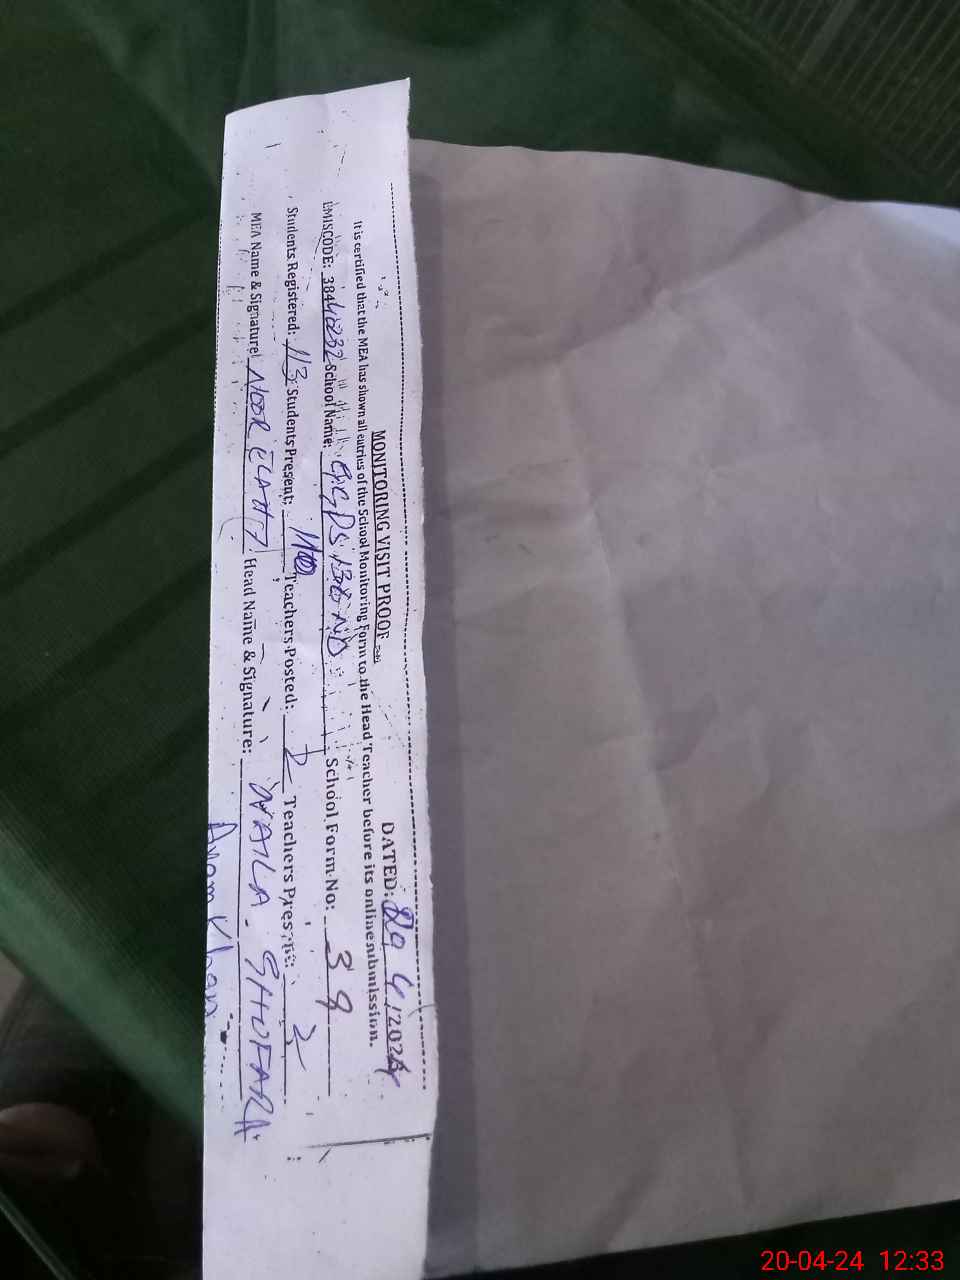 MONITORING VISIT PROOF DATED: 20 4/2024
It is certified that the MEA has shown all entries of the School Monitoring Form to the Head Teacher before its online submission.
EMISCODE: 38440232 School Name: School Form No: 39
Students Registered: 113 Students Present: Teachers Posted: 2 Teachers Present: 2
MEA Name & Signature: NOOR ELAHI Head Name & Signature: NAILA
Anam Khan
20-04-24 12:33